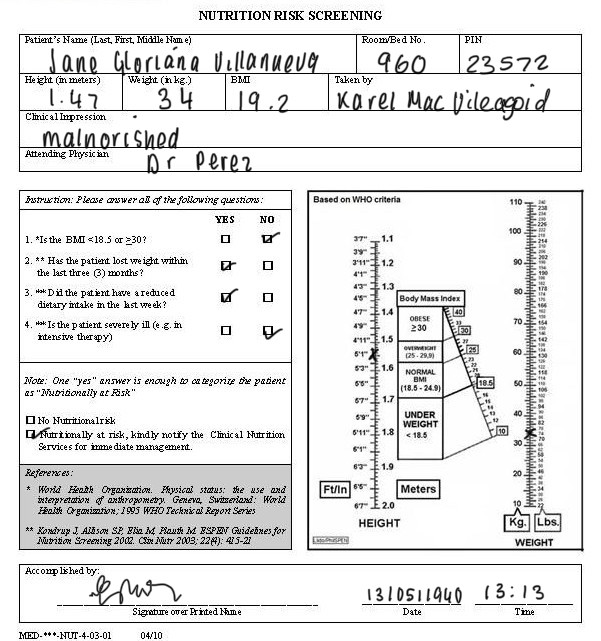 NUTRITION RISK SCREENING
Patient's Name (Last, First, Middle Name) Room/Bed No. PIN
Jane Gloriana Villanueva 960 23572
Height (in meters) Weight (in kg.) BMI Taken by
1.47 34 19.2 Karel Mac Vileagoid
Clinical Impression
malnorished
Attending Physician
Dr Perez
Instruction: Please answer all of the following questions:
YES NO
1. *Is the BMI <18.5 or ≥30?
2. ** Has the patient lost weight within
the last three (3) months?
3. **Did the patient have a reduced
dietary intake in the last week?
4. **Is the patient severely ill (e.g. in
intensive therapy)
Note: One "yes" answer is enough to categorize the patient
as "Nutritionally at Risk"
No Nutritional risk
Nutritionally at risk, kindly notify the Clinical Nutrition
Services for immediate management.
References:
* World Health Organization. Physical status: the use and
interpretation of anthropometry. Geneva, Switzerland: World
Health Organization; 1995 WHO Technical Report Series
** Kondrup J, Allison SP, Elia M, Plauth M. ESPEN Guidelines for
Nutrition Screening 2002. Clin Nutr 2003; 22(4): 415-21
Based on WHO criteria
3'7" 1.1
3'9"
3'11" 1.2
4'1"
4'3" 1.3
4'5"
4'7" 1.4
4'9"
4'11" 1.5
5'1" 1.6
5'3"
5'5"
5'7" 1.7
5'9"
5'11" 1.8
6'1"
6'3" 1.9
6'5"
6'7" 2.0
Ft/In Meters
HEIGHT
Body Mass Index
OBESE
≥30
OVERWEIGHT
(25 - 29,9)
NORMAL
BMI
(18.5 - 24.9)
UNDER
WEIGHT
< 18.5
40
30
25
18.5
10
110
100
90
80
70
60
50
40
30
20
10
Kg. Lbs.
WEIGHT
Accomplished by:
13/05/1940 13:13
Signature over Printed Name Date Time
MED-***-NUT-4-03-01 04/10